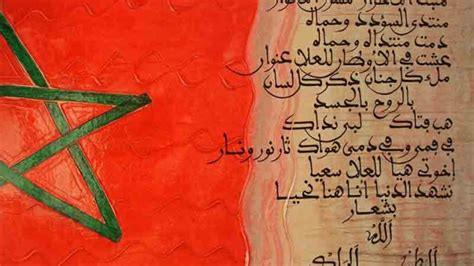 منبت الأحرار مشرق الأنوار
منتدى السؤدد وحماه
دمت منتداه وحماه
عشت في الاوطان للعلا عنوان
ملء كل جنان ذكرى كل لسان
بالروح بالجسد
هب فتاك لبى نداك
في فمي وفي دمي هواك ثار نور ونار
إخوتي هيا للعلا سعيا
نشهد الدنيا أنا هنا نحيا
بشعار
الله
الوطن الملك